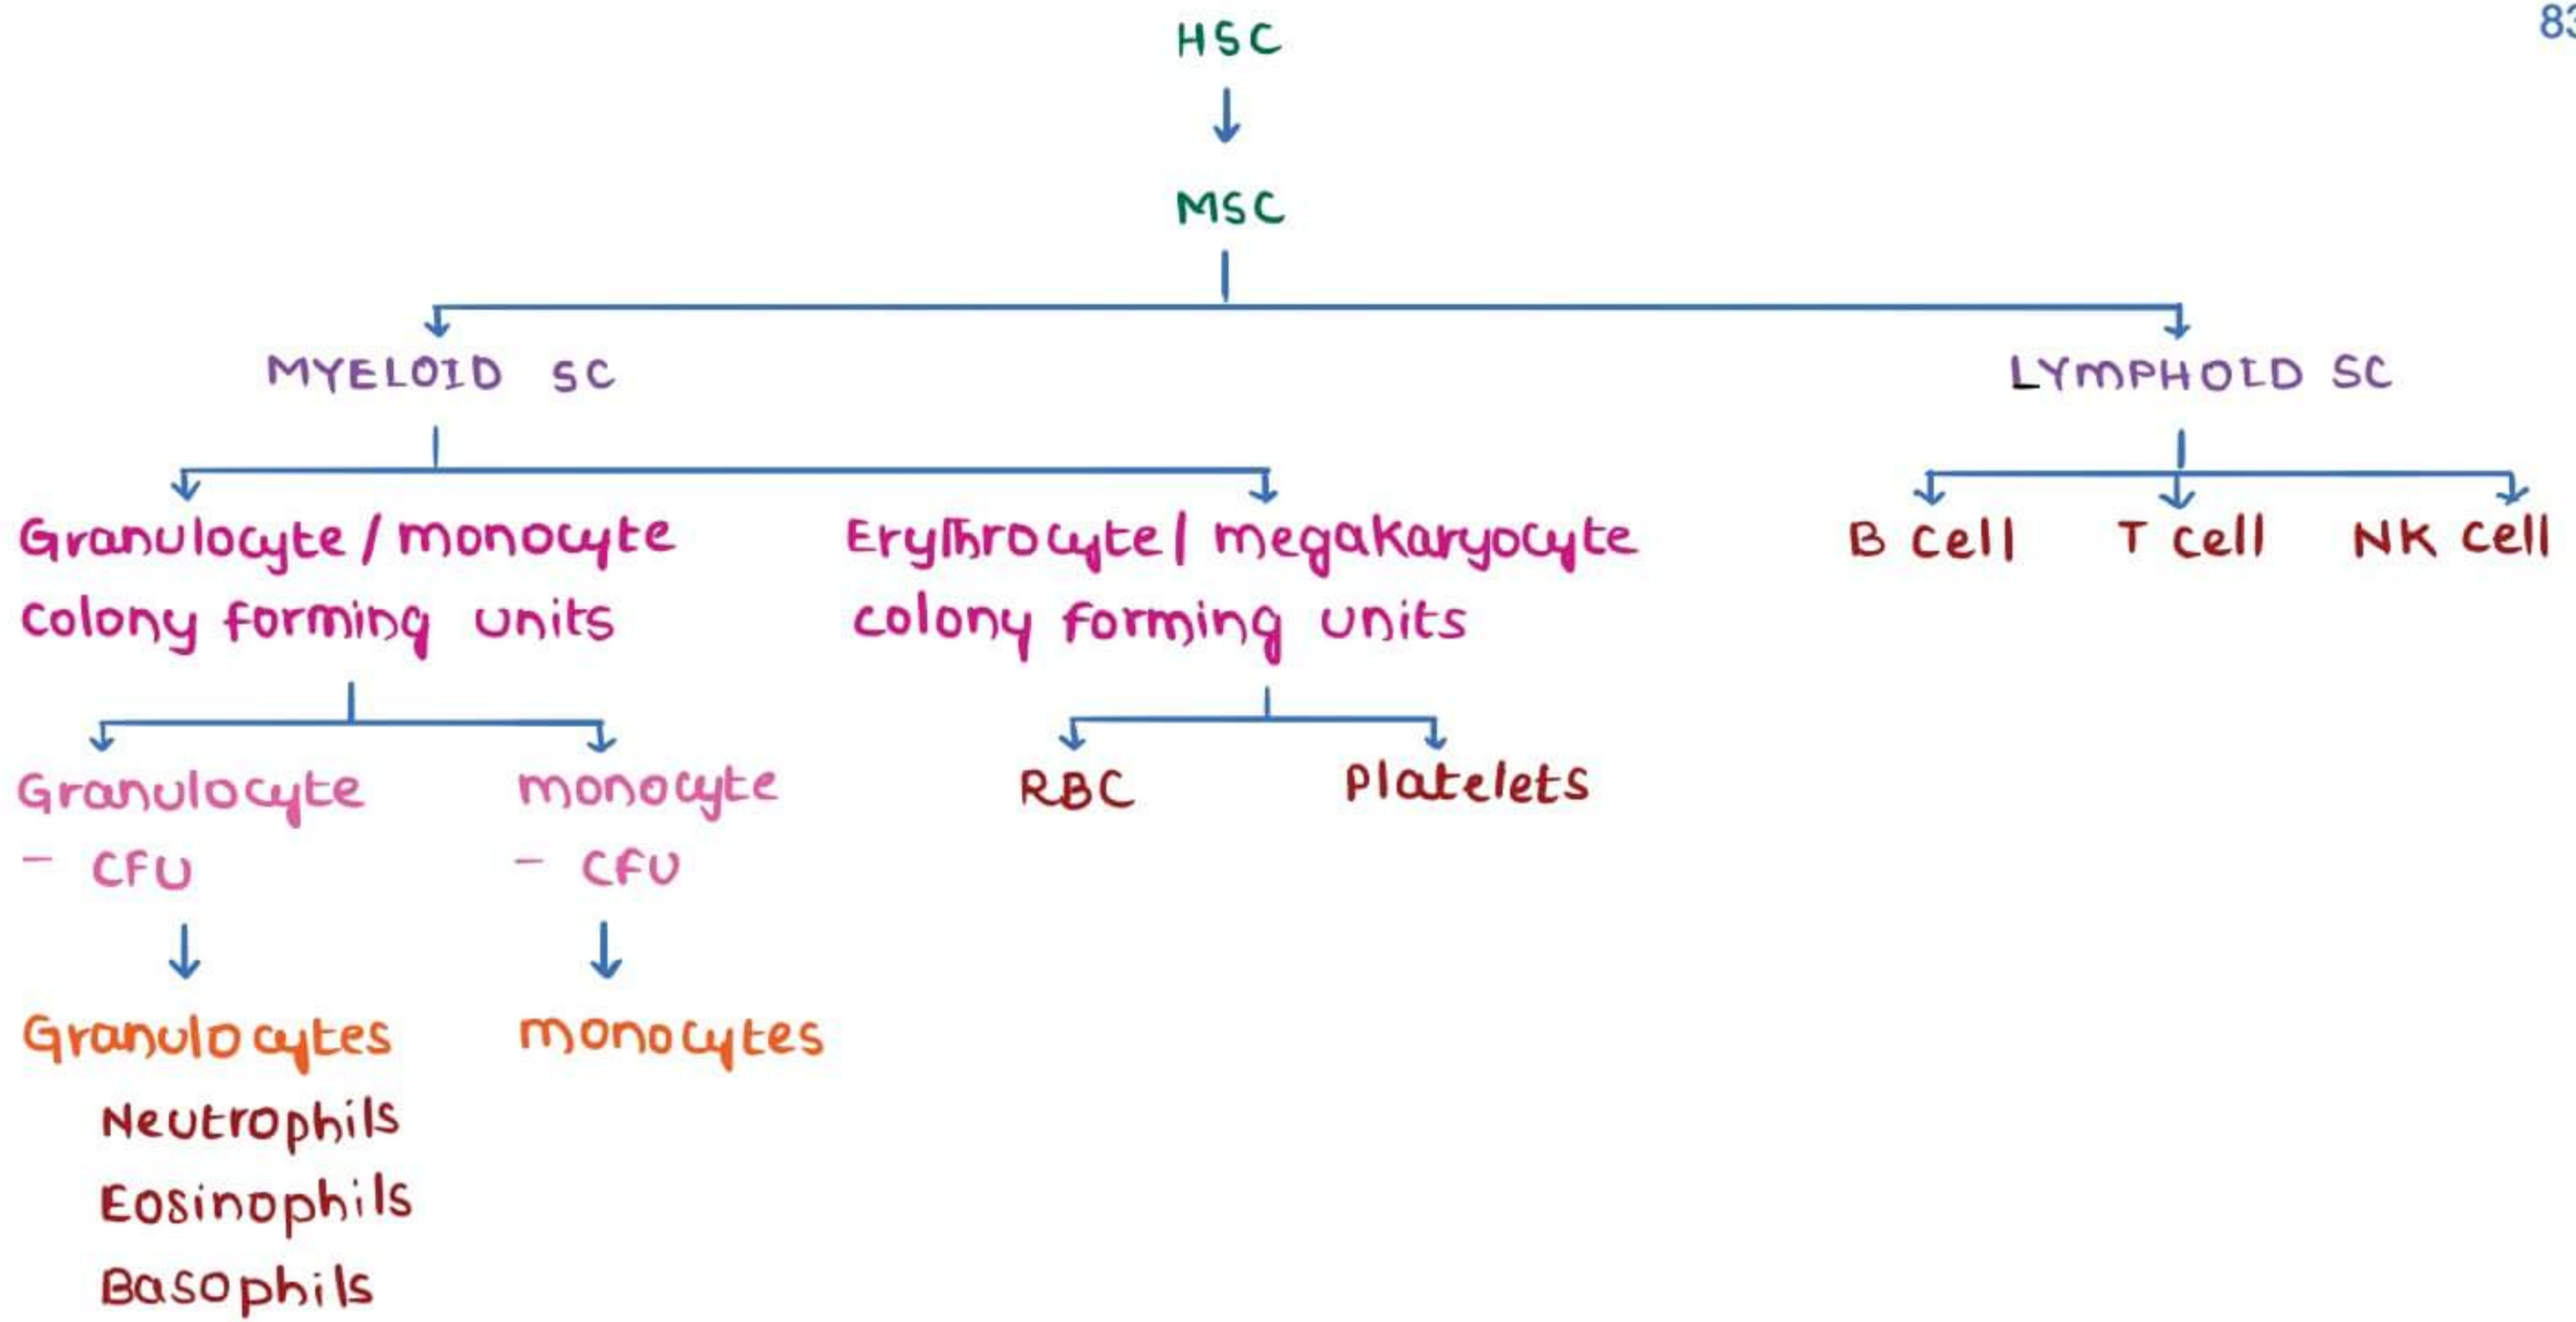 83
HSC
MSC
MYELOID SC
LYMPHOID SC
Granulocyte / monocyte
colony forming units
Erythrocyte / megakaryocyte
colony forming units
B cell
T cell
NK cell
Granulocyte
- CFU
monocyte
- CFU
RBC
Platelets
Granulocytes
monocytes
Neutrophils
Eosinophils
Basophils